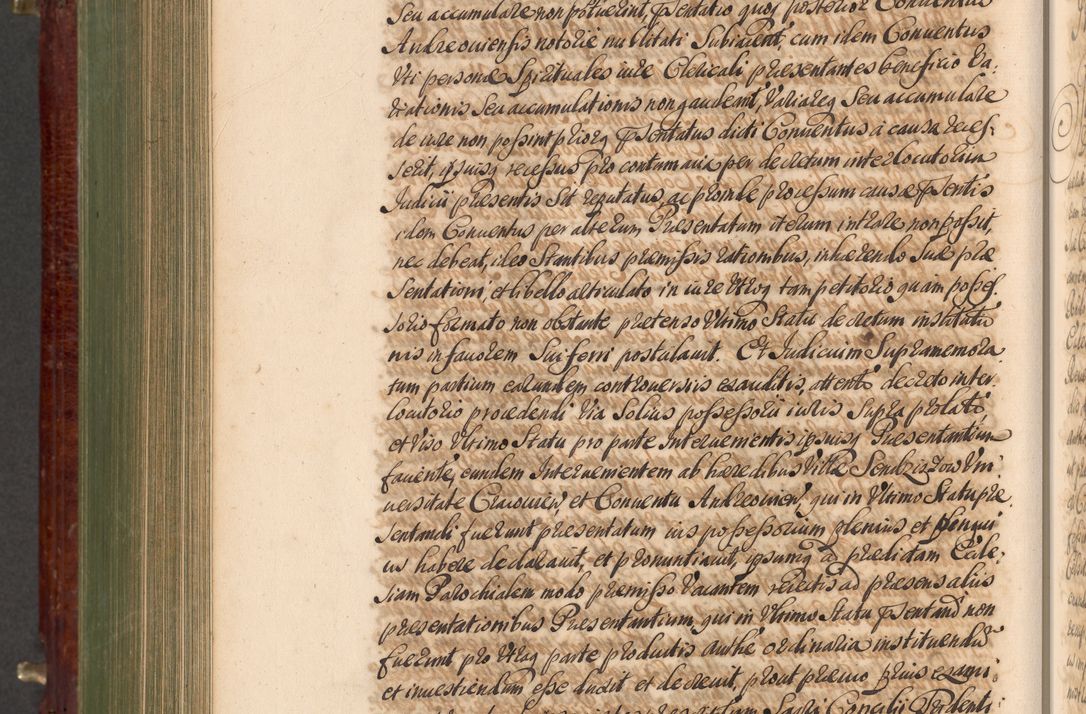 seu accumulare non potuerint, pšentatio quoq posterior Conventus
Andreoviensis notorie nullitati Subiacent, cum idem Conventus
Uti personæ Spirituales iure Clericali præsentantes beneficio Va-
riationis Seu accumulationis non gaudeant, Variareq Seu accumulare
de iure non possint, priorq pšentatus dicti Conventus à causa reces-
serit, ipsiusq recessus pro contumacia per decretum interlocutorium
Judicii præsentis Sit reputatus, ac proinde processum causæ pšentis
idem Conventus per alterum Præsentatum iterum intrare non possit,
nec debeat, ideo Stantibus præmissis rationibus, inhærendo Suæ præ
Sentationi, et libello articulato in iure Utroq tam petitorio quam posses-
sorio formato non obstante prætenso Ultimo Statu decretum institutio
nis in favorem Sui ferri postulavit. Et Judicium Supramemora
tum partium earundem controversiis exauditis, attento decreto inter-
locutorio procedendi Via Solius possessorii iuris Supra prolato,
et Viso Ultimo Statu pro parte Intervenientis ipsiusq Præsentantium
favente, eundem Intervenientem ab hæredibus Villæ Sendziszow Uni-
versitate Cracovien, et Conventu Andreovien, qui in Ultimo Statu præ
sentandi fuerunt præsentatum ius possessorium plenius et plenioris
ius habere declaravit, et pronuntiavit, ipsumq ad prædictam Eccle-
siam Parochialem modo præmisso Vacantem reiectis ad præsens aliis
præsentationibus Præsentantium, qui in Ultimo Statu pšentandi non
fuerunt pro Utraq parte productis authe ordinaria instituendũ
et investiendum esse duxit et decrevit, prout præmio prius exami-
Sacri Concilii Tridenti-